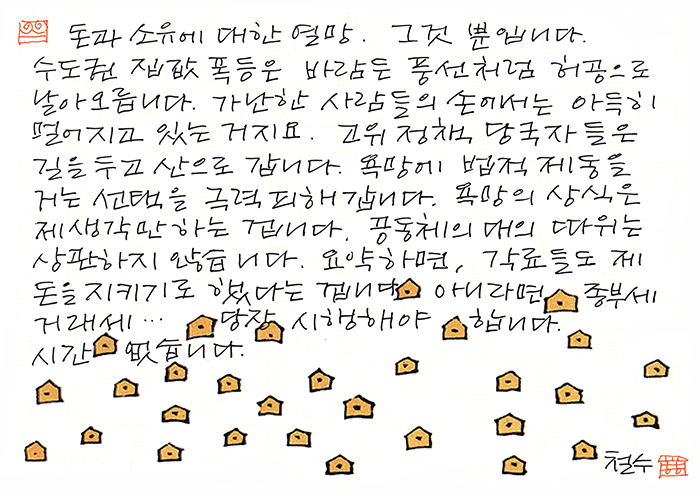 돈과 소유에 대한 열망. 그것 뿐입니다.
수도권 집값 폭등은 바람든 풍선처럼 허공으로
날아오릅니다. 가난한 사람들의 손에서는 아득히
멀어지고 있는 거지요. 고위 정책 당국자들은
길을 두고 산으로 갑니다. 욕망에 법적 제동을
거는 선택을 극력 피해갑니다. 욕망의 상식은
제생각만하는 겁니다. 공동체의 대의 따위는
상관하지 않습니다. 요약하면, 각료들도 제
돈을 지키기로 했다는 겁니다. 아니라면, 종부세
거래세… 당장 시행해야 합니다.
시간 없습니다.
철수